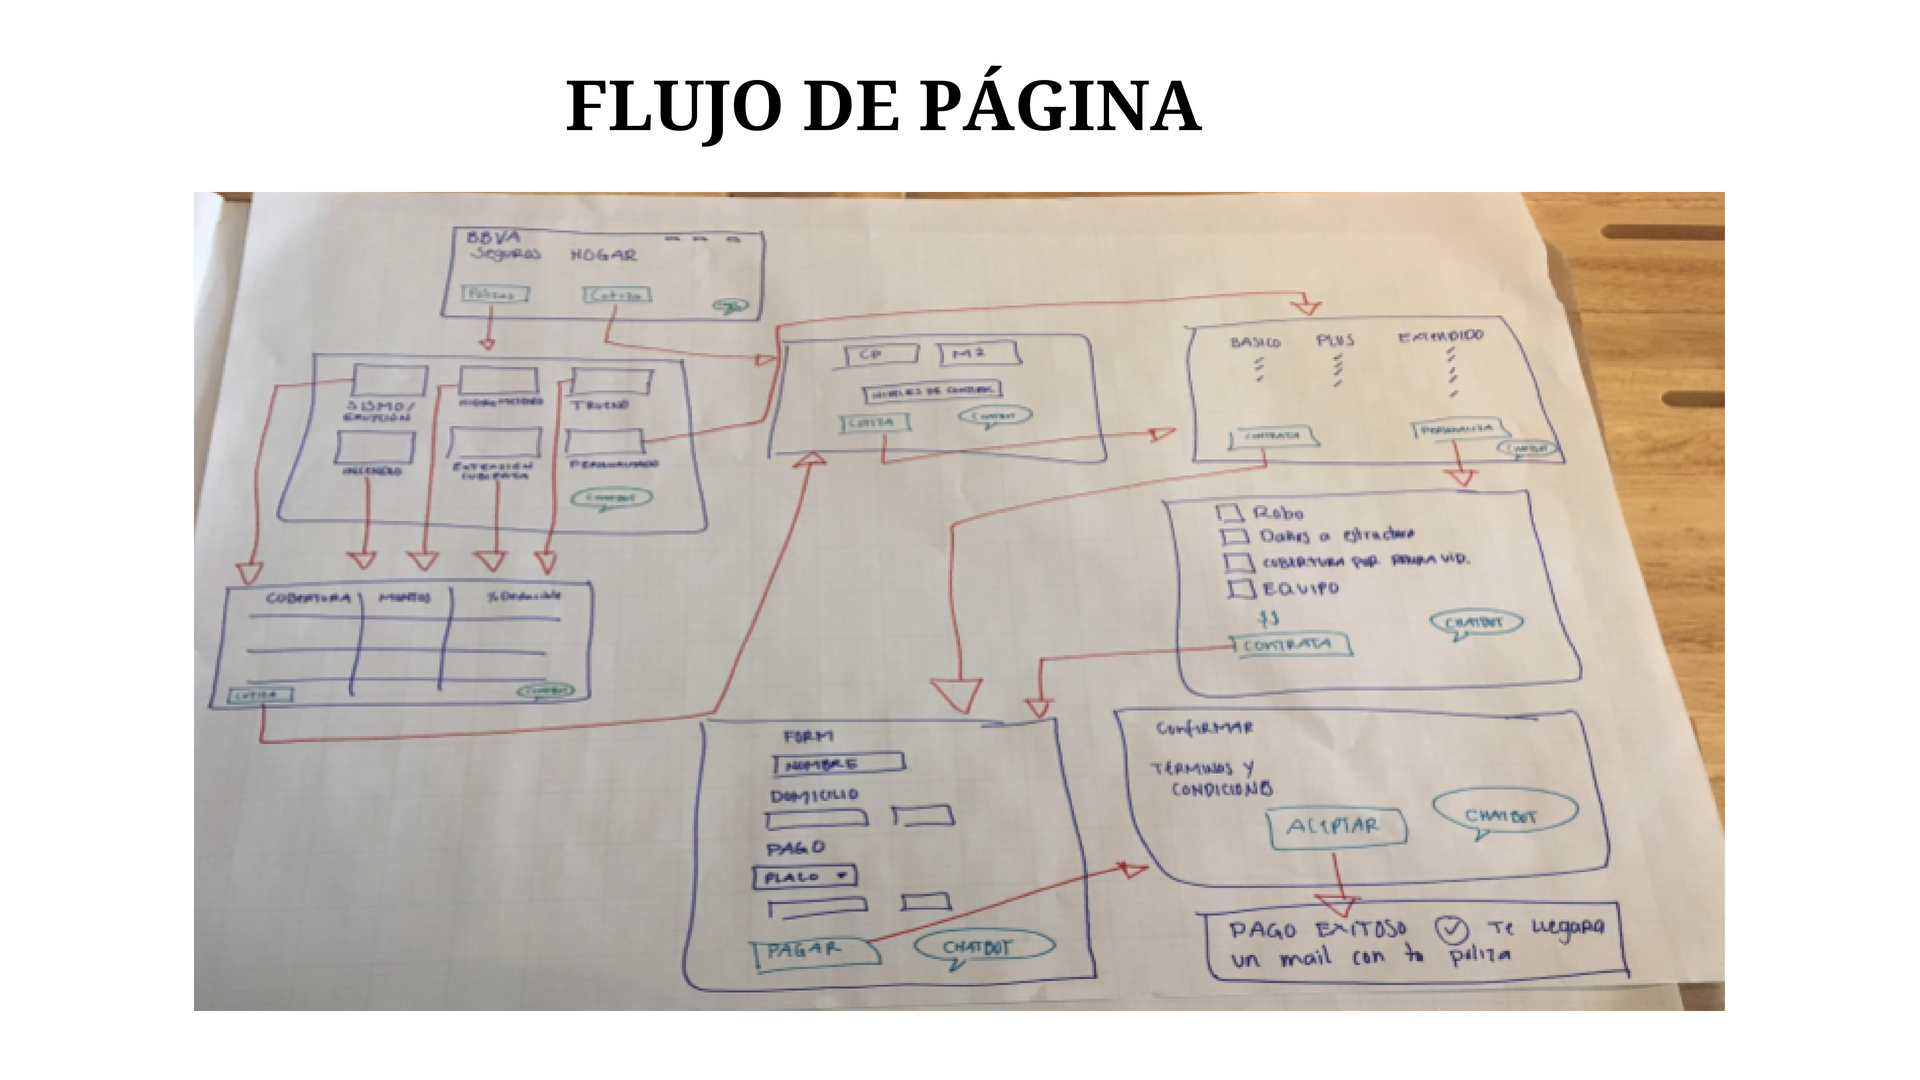 FLUJO DE PÁGINA
BBVA
Seguros HOGAR
Polizas Cotiza
SISMO/
ERUPCIÓN
TRUENO
INCENDIO
EXTENSIÓN
CUBIERTA
PERSONALIZADO
CHATBOT
COBERTURA MONTOS % Deducible
COTIZA CHATBOT
CP M2
NIVELES DE CONTROL
COTIZA CHATBOT
BASICO PLUS EXTENDIDO
CONTRATA PERSONALIZA
CHATBOT
Robo
Daños a estructura
COBERTURA POR VID.
EQUIPO
$$
CONTRATA CHATBOT
FORM
NOMBRE
DOMICILIO
PAGO
PLAZO
PAGAR CHATBOT
CONFIRMAR
TÉRMINOS Y
CONDICIONES
ACEPTAR CHATBOT
PAGO EXITOSO Te llegara
un mail con tu poliza